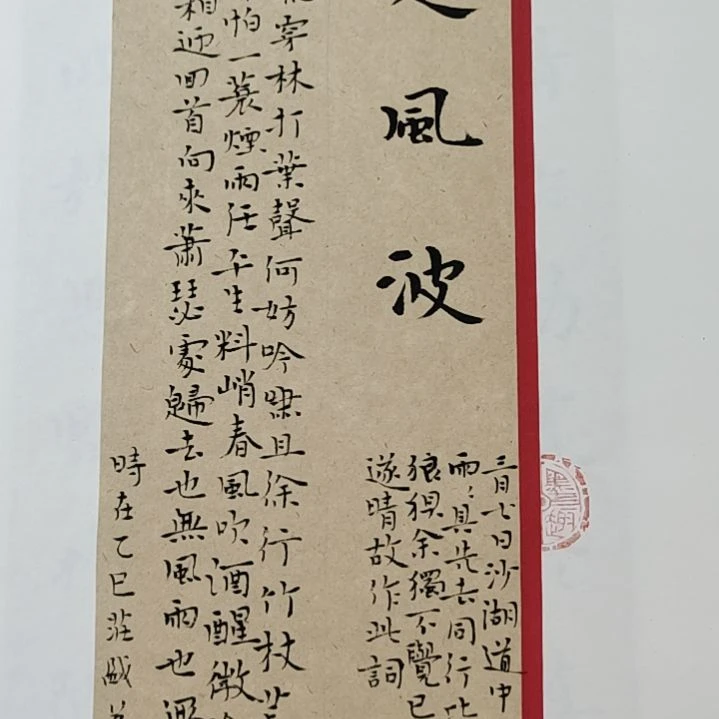 風波
三月七日沙湖道中
雨〻具先去同行
狼狽余獨不覺已
遂晴故作此詞
穿林打葉聲何妨吟嘯且徐行竹杖芒
怕一蓑煙雨任平生料峭春風吹酒醒微
相迎回首向來蕭瑟處歸去也無風雨也無
時在乙巳